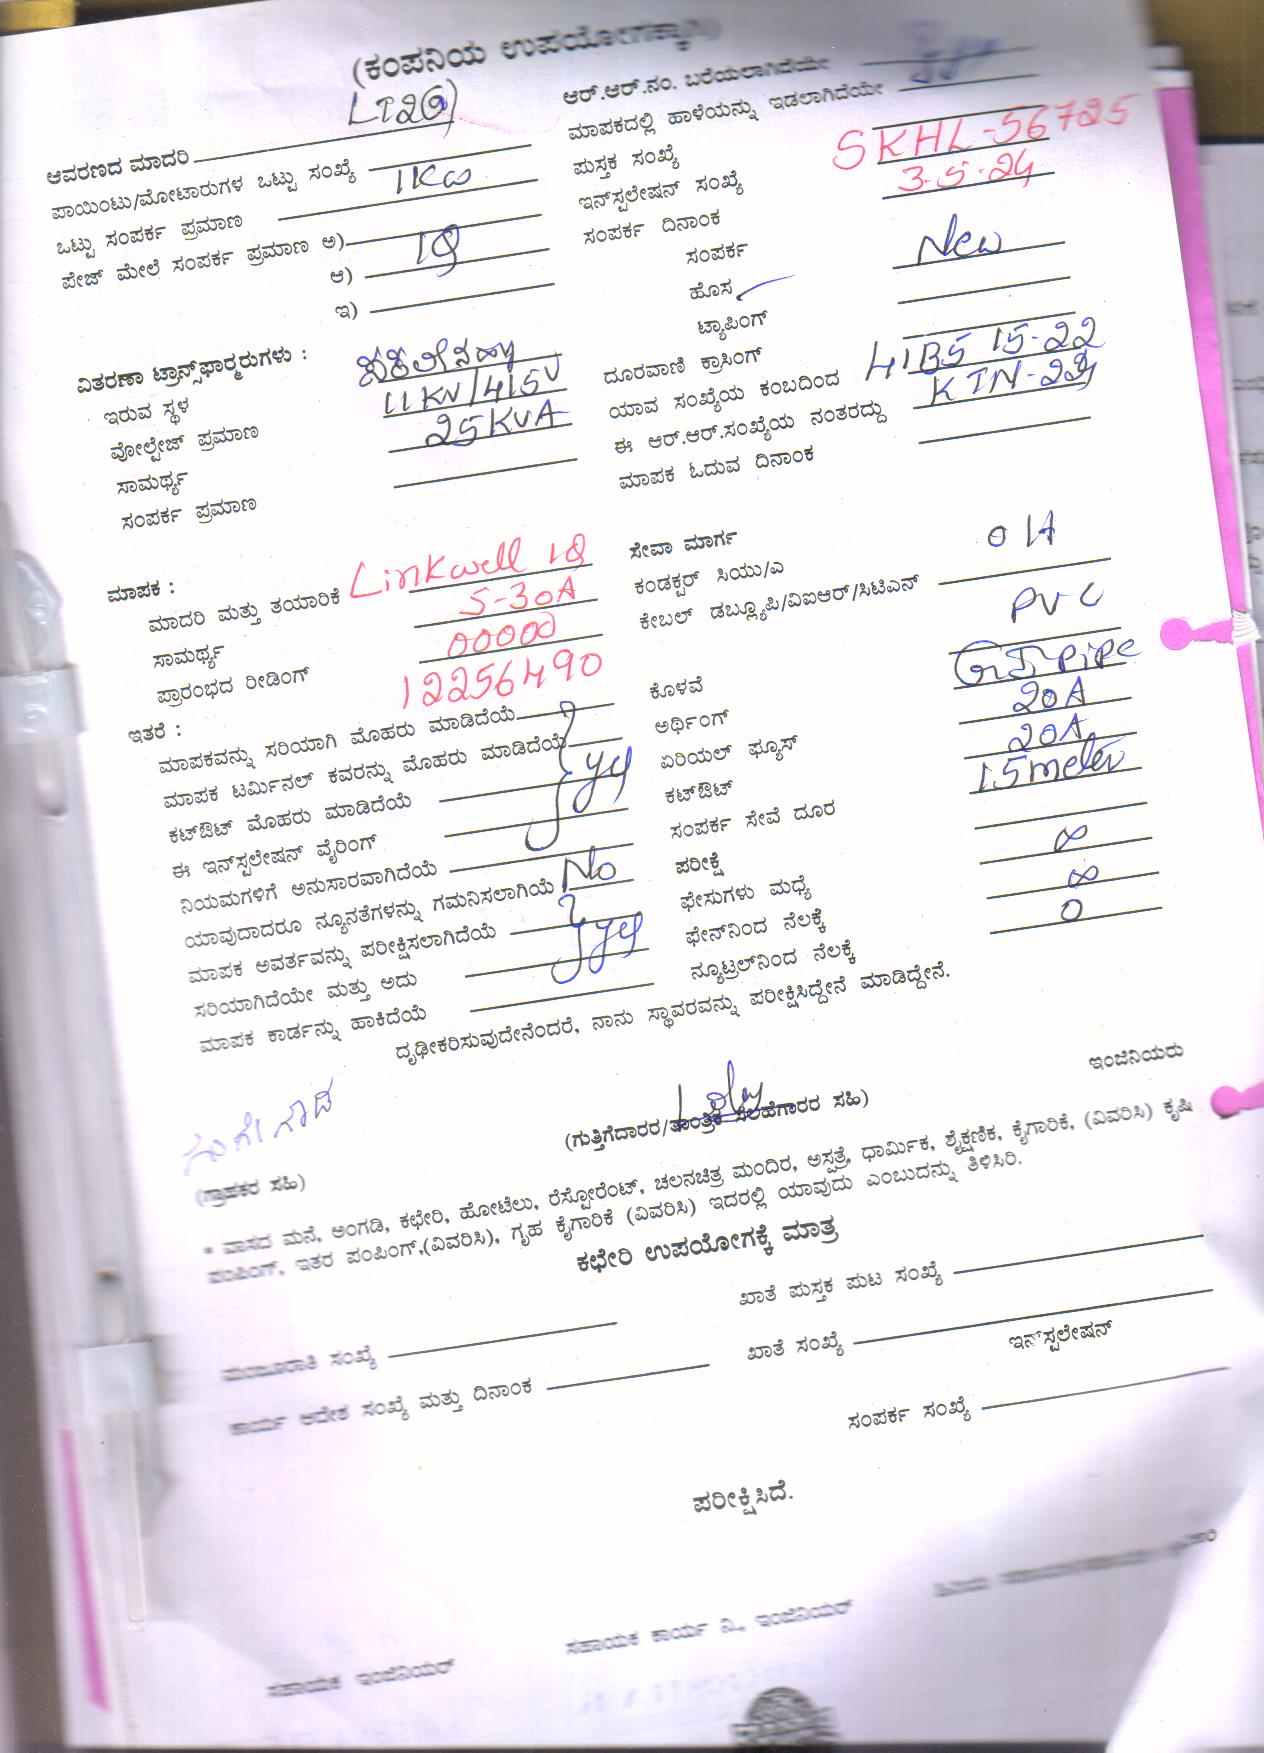 (ಕಂಪನಿಯ ಉಪಯೋಗಕ್ಕಾಗಿ)
ಆವರಣದ ಮಾದರಿ LT2
ಪಾಯಿಂಟು/ಮೋಟಾರುಗಳ ಒಟ್ಟು ಸಂಖ್ಯೆ
ಒಟ್ಟು ಸಂಪರ್ಕ ಪ್ರಮಾಣ 1KW
ಪೇಜ್ ಮೇಲೆ ಸಂಪರ್ಕ ಪ್ರಮಾಣ ಅ)
ಆ) 1Ø
ಇ)
ಆರ್.ಆರ್.ನಂ. ಬರೆಯಲಾಗಿದೆಯೇ
ಮಾಪಕದಲ್ಲಿ ಹಾಳೆಯನ್ನು ಇಡಲಾಗಿದೆಯೇ
ಪುಸ್ತಕ ಸಂಖ್ಯೆ
ಇನ್‌ಸ್ಪಲೇಷನ್ ಸಂಖ್ಯೆ SKHL-56725
ಸಂಪರ್ಕ ದಿನಾಂಕ 3-5-24
ಸಂಪರ್ಕ
ಹೊಸ New
ಟ್ಯಾಪಿಂಗ್
ವಿತರಣಾ ಟ್ರಾನ್ಸ್‌ಫಾರ್ಮರುಗಳು :
ಇರುವ ಸ್ಥಳ
ವೋಲ್ಟೇಜ್ ಪ್ರಮಾಣ 11KV/415V
ಸಾಮರ್ಥ್ಯ 25KVA
ಸಂಪರ್ಕ ಪ್ರಮಾಣ
ದೂರವಾಣಿ ಕ್ರಾಸಿಂಗ್
ಯಾವ ಸಂಖ್ಯೆಯ ಕಂಬದಿಂದ 15-22
ಈ ಆರ್.ಆರ್.ಸಂಖ್ಯೆಯ ನಂತರದ್ದು
ಮಾಪಕ ಓದುವ ದಿನಾಂಕ
ಮಾಪಕ :
ಮಾದರಿ ಮತ್ತು ತಯಾರಿಕೆ Linkwell 1Ø
ಸಾಮರ್ಥ್ಯ 5-30A
ಪ್ರಾರಂಭದ ರೀಡಿಂಗ್ 00000
12256490
ಸೇವಾ ಮಾರ್ಗ
ಕಂಡಕ್ಟರ್ ಸಿಯು/ಎ
ಕೇಬಲ್ ಡಬ್ಲ್ಯೂಪಿ/ವಿಐಆರ್/ಸಿಟಿಎನ್ PVC
ಕೊಳವೆ GI Pipe
ಅರ್ಥಿಂಗ್
ಏರಿಯಲ್ ಫ್ಯೂಸ್ 20A
ಕಟ್‌ಔಟ್ 20A
ಸಂಪರ್ಕ ಸೇವೆ ದೂರ 15 meter
ಪರೀಕ್ಷೆ
ಫೇಸುಗಳು ಮಧ್ಯೆ ∞
ಫೇಸ್‌ನಿಂದ ನೆಲಕ್ಕೆ ∞
ನ್ಯೂಟ್ರಲ್‌ನಿಂದ ನೆಲಕ್ಕೆ 0
ಇತರೆ :
ಮಾಪಕವನ್ನು ಸರಿಯಾಗಿ ಮೊಹರು ಮಾಡಿದೆಯೆ
ಮಾಪಕ ಟರ್ಮಿನಲ್ ಕವರನ್ನು ಮೊಹರು ಮಾಡಿದೆಯೆ
ಕಟ್‌ಔಟ್ ಮೊಹರು ಮಾಡಿದೆಯೆ
ಈ ಇನ್‌ಸ್ಪಲೇಷನ್ ವೈರಿಂಗ್
ನಿಯಮಗಳಿಗೆ ಅನುಸಾರವಾಗಿದೆಯೆ
ಯಾವುದಾದರೂ ನ್ಯೂನತೆಗಳನ್ನು ಗಮನಿಸಲಾಗಿಯೆ No
ಮಾಪಕ ಅವರ್ತವನ್ನು ಪರೀಕ್ಷಿಸಲಾಗಿದೆಯೆ
ಸರಿಯಾಗಿದೆಯೇ ಮತ್ತು ಅದು
ಮಾಪಕ ಕಾರ್ಡನ್ನು ಹಾಕಿದೆಯೆ
ದೃಢೀಕರಿಸುವುದೇನೆಂದರೆ, ನಾನು ಸ್ಥಾವರವನ್ನು ಪರೀಕ್ಷಿಸಿದ್ದೇನೆ ಮಾಡಿದ್ದೇನೆ.
ಇಂಜಿನಿಯರು
(ಗುತ್ತಿಗೆದಾರರ/ತಾಂತ್ರಿಕ ಸಲಹೆಗಾರರ ಸಹಿ)
(ಗ್ರಾಹಕರ ಸಹಿ)
* ವಾಸದ ಮನೆ, ಅಂಗಡಿ, ಕಛೇರಿ, ಹೋಟೆಲು, ರೆಸ್ಟೋರೆಂಟ್, ಚಲನಚಿತ್ರ ಮಂದಿರ, ಅಸ್ಪತ್ರೆ, ಧಾರ್ಮಿಕ, ಶೈಕ್ಷಣಿಕ, ಕೈಗಾರಿಕೆ, (ವಿವರಿಸಿ) ಕೃಷಿ
ಪಂಪಿಂಗ್, ಇತರ ಪಂಪಿಂಗ್,(ವಿವರಿಸಿ), ಗೃಹ ಕೈಗಾರಿಕೆ (ವಿವರಿಸಿ) ಇದರಲ್ಲಿ ಯಾವುದು ಎಂಬುದನ್ನು ತಿಳಿಸಿರಿ.
ಕಛೇರಿ ಉಪಯೋಗಕ್ಕೆ ಮಾತ್ರ
ಮಂಜೂರಾತಿ ಸಂಖ್ಯೆ
ಖಾತೆ ಪುಸ್ತಕ ಪುಟ ಸಂಖ್ಯೆ
ಕಾರ್ಯ ಆದೇಶ ಸಂಖ್ಯೆ ಮತ್ತು ದಿನಾಂಕ
ಖಾತೆ ಸಂಖ್ಯೆ
ಇನ್‌ಸ್ಪಲೇಷನ್
ಸಂಪರ್ಕ ಸಂಖ್ಯೆ
ಪರೀಕ್ಷಿಸಿದೆ.
ಸಹಾಯಕ ಇಂಜಿನಿಯರ್
ಸಹಾಯಕ ಕಾರ್ಯ ನಿ., ಇಂಜಿನಿಯರ್